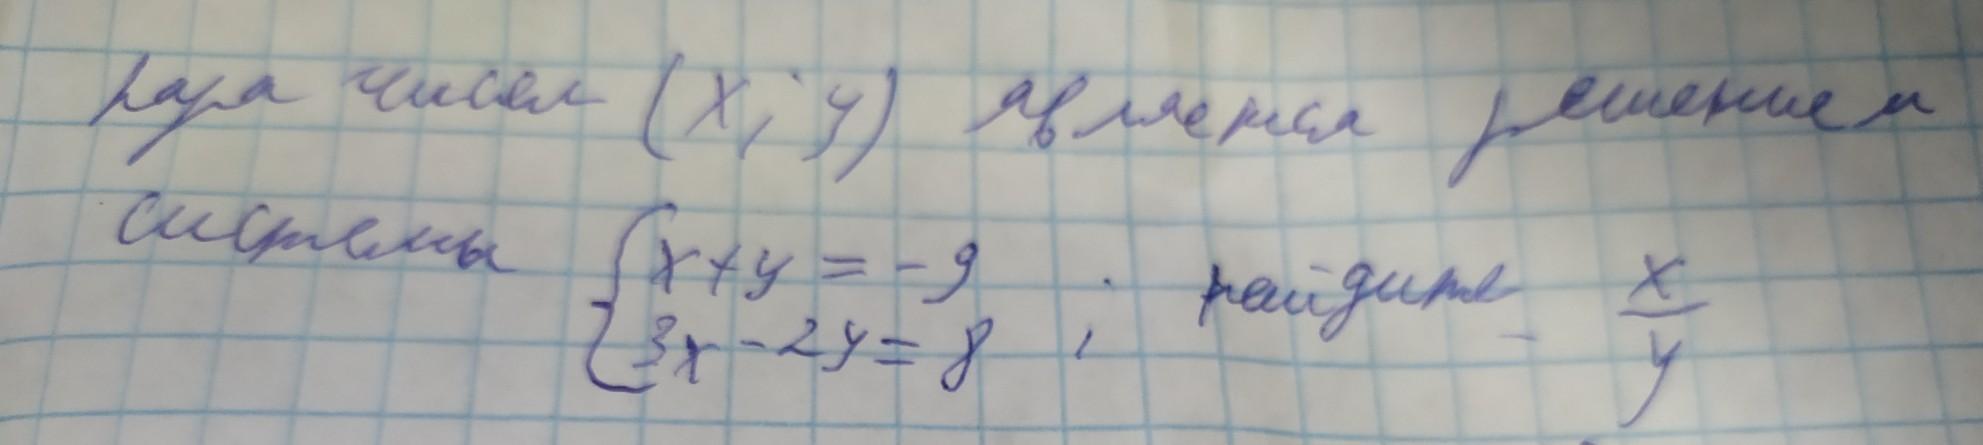 пара чисел (x; y) является решением
системы { x+y = -9 ; найдите x/y
3x - 2y = 8